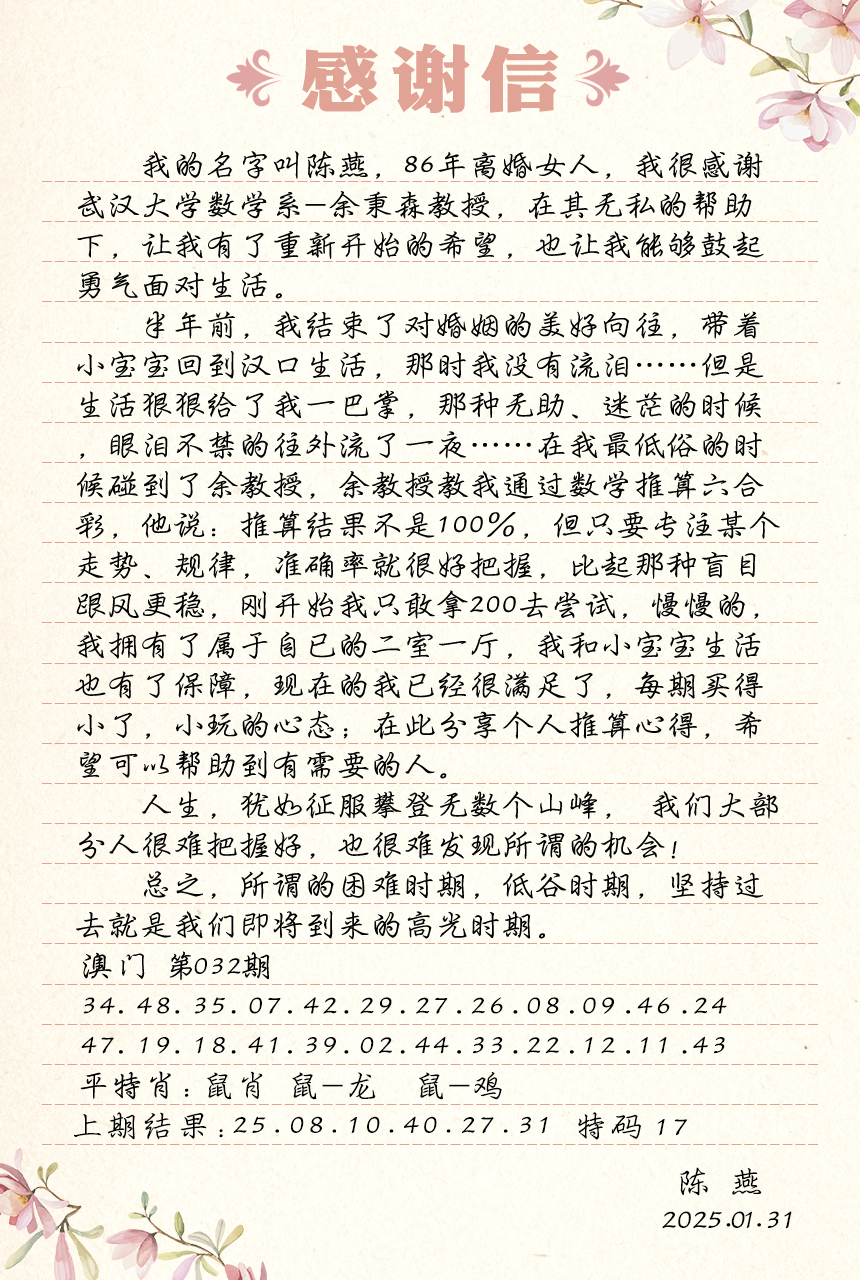 感谢信
我的名字叫陈燕，86年离婚女人，我很感谢
武汉大学数学系-余秉森教授，在其无私的帮助
下，让我有了重新开始的希望，也让我能够鼓起
勇气面对生活。
半年前，我结束了对婚姻的美好向往，带着
小宝宝回到汉口生活，那时我没有流泪……但是
生活狠狠给了我一巴掌，那种无助、迷茫的时候
，眼泪不禁的往外流了一夜……在我最低俗的时
候碰到了余教授，余教授教我通过数学推算六合
彩，他说：推算结果不是100%，但只要专注某个
走势、规律，准确率就很好把握，比起那种盲目
跟风更稳，刚开始我只敢拿200去尝试，慢慢的，
我拥有了属于自已的二室一厅，我和小宝宝生活
也有了保障，现在的我已经很满足了，每期买得
小了，小玩的心态；在此分享个人推算心得，希
望可以帮助到有需要的人。
人生，犹如征服攀登无数个山峰， 我们大部
分人很难把握好，也很难发现所谓的机会！
总之，所谓的困难时期，低谷时期，坚持过
去就是我们即将到来的高光时期。
澳门 第032期
34.48.35.07.42.29.27.26.08.09.46.24
47.19.18.41.39.02.44.33.22.12.11.43
平特肖：鼠肖 鼠-龙 鼠-鸡
上期结果：25.08.10.40.27.31 特码 17
陈 燕
2025.01.31